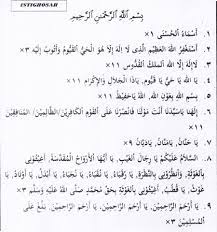 ISTIGHOSAH
بِسْمِ اللَّهِ الرَّحْمَنِ الرَّحِيْمِ
١. أَسْمَاءُ الْحُسْنَى ×١
٢. أَسْتَغْفِرُ اللهَ الْعَظِيْمَ الَّذِي لَا إِلَهَ إِلَّا هُوَ الْحَيُّ الْقَيُّوْمُ وَأَتُوْبُ إِلَيْهِ ×٣
٣. لَا إِلَهَ إِلَّا اللهُ الْمَلِكُ الْقُدُّوْسُ ×١١
٤. يَا اللهُ يَا حَيُّ يَا قَيُّوْمُ، يَاذَا الْجَلَالِ وَالْإِكْرَامِ ×١١
٥. بِسْمِ اللهِ بِعَوْنِ اللهِ، يَا اللهُ يَاحَفِيْظُ ×١١
٦. إِلَهَنَا يَاسَيِّدَنَا أَنْتَ مَوْلَنَا فَانْصُرْنَا عَلَى الْقَوْمِ الْكَافِرِيْنَ/الظَّالِمِيْنَ/ الْمُنَافِقِيْنَ
×١١
٧. يَا حَنَّانُ، يَامَنَّانُ، يَادَيَّانُ ×٩
٨. السَّلَامُ عَلَيْكُمْ يَا رِجَالَ الْغَيْبِ، يَا أَيُّهَا الْأَرْوَاحُ الْمُقَدَّسَةُ، أَغِيْثُوْنِي
بِالْغَوْثَةِ، وَانْظُرُوْنِي بِالنَّظْرَةِ، يَا
أَغِيْثُوْنِي بِالْغَوْثَةِ بِحَقِّ مُحَمَّدٍ صَلَّى اللهُ عَلَيْهِ وَسَلَّمَ ×٣
٩. يَا أَرْحَمَ الرَّاحِمِيْنَ، يَا أَرْحَمَ الرَّاحِمِيْنَ، يَا أَرْحَمَ الرَّاحِمِيْنَ، عَلَى
الْمُسْلِمِيْنَ ×٣